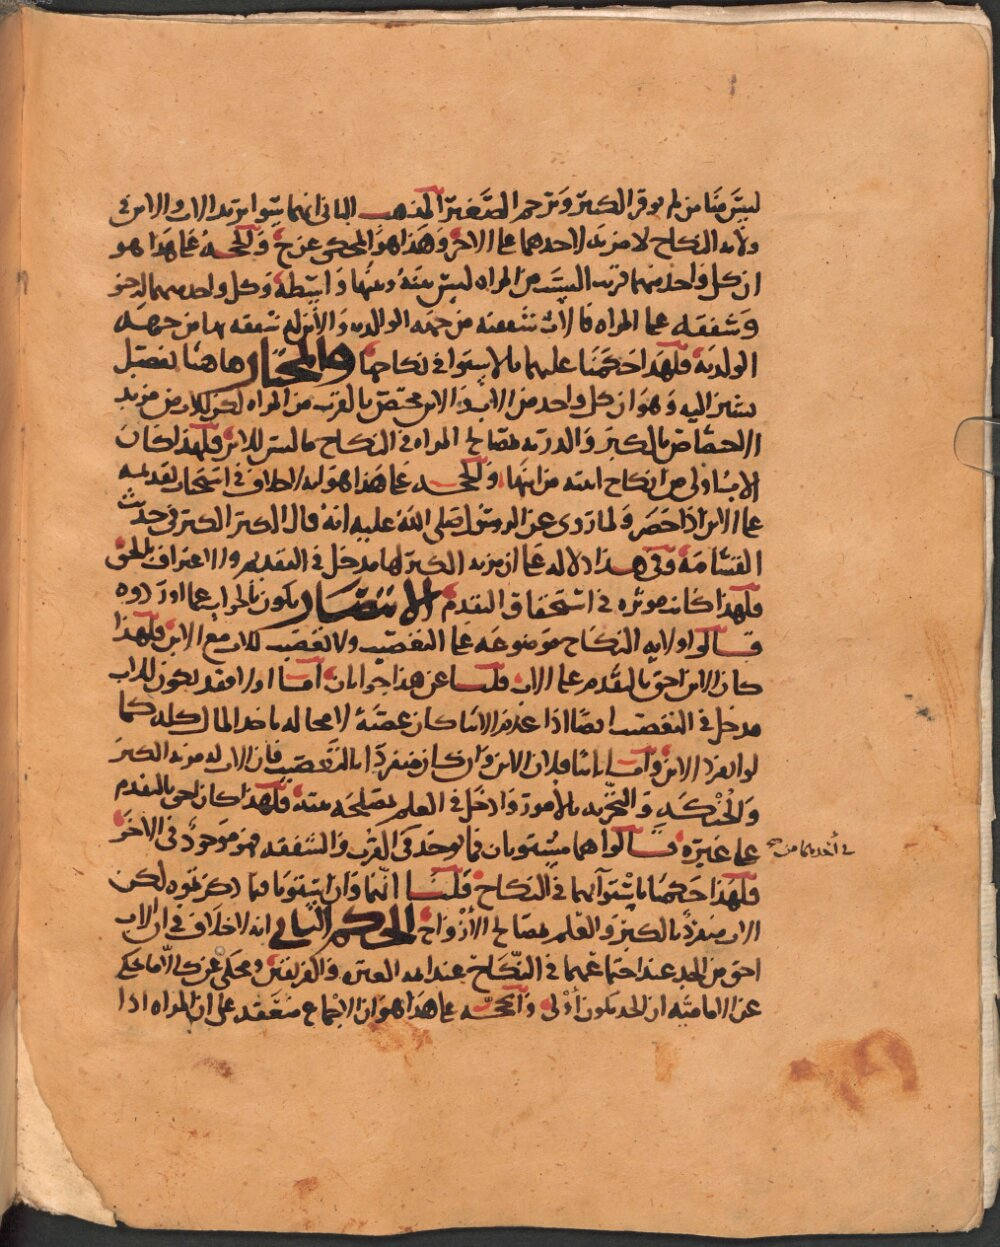 ليس منا من لم يوقر الكبير ويرحم الصغير المذهب الثاني انهما سوا بريد الاب والابن في
ولاية النكاح لا مزية لاحدهما على الاخر وهذا هو المحكي عن ح والحجة على هذا هو
ان كل واحد منهما قريب النسب من المراه ليس بينه وبينها واسطة وكل واحد منهما له حنو
وشفقه على المراه فالاب شفقته من جهه الوالديه والابن له شفقه بها من جهه
الولديه فلهذا حكمنا عليهما بالاستوا في نكاحها والمختار هاهنا تفصيل
نشير اليه وهو ان كل واحد من الاب والابن مختص بالقرب من المراه لكن للاب من مزيد
الاختصاص بالكبر والدربه لمصالح المراه في النكاح ما ليس للابن فلهذا كان
الاب اولى من انكاح ابنته من ابنها والحجه على هذا هو انه لا خلاف في استحباب تقديمه
على الابن اذا حضر ولما روى عن الرسول صلى الله عليه انه قال الكبر الكبر في حديث
القسامة وفي هذا دلاله على ان مزيد الكبر لها مدخل في التقديم والاعتراف بالحق
فلهذا كانت موثره في استحقاق التقدم الانتصار يكون بالجواب عما اوردوه
قالوا ولايه النكاح موضوعه على التعصيب ولا تعصيب للاب مع الابن فلهذا
كان الابن احق بالتقدم على الاب قلنا عن هذا جوابان اما اولا فقد يكون للاب
مدخل في التعصيب ايضا اذا عدم الابنا كان عصبة لا محاله ياخذ المال كله كما
لو انفرد الابن واما ثانيا فلان الابن وان كان منفردا بالتعصيب فان الاب له مزيه الكبر
والحنكه والتجربه بالامور وادخل في العلم بمصلحه بنته فلهذا كان احق بالتقدم
على غيره قالوا هما مستويان فما يوجد في القرب والشفقه فهو موجود في الاخر
في احدهما من
فلهذا حكمنا باستوآيهما في النكاح قلنا انهما وان استويا فيما ذكرتموه لكن
الاب منفرد بالكبر والعلم بمصالح الازواج الحكم الثاني انه لا خلاف في ان الاب
احق من الجد عند اجتماعهما في النكاح عند ايمه العتره والفريقين ومحكي عن ك الا ما يحكى
عن الاماميه ان الجد يكون أولى والحجه على هذا هو ان الاجماع منعقد على ان المراه اذا